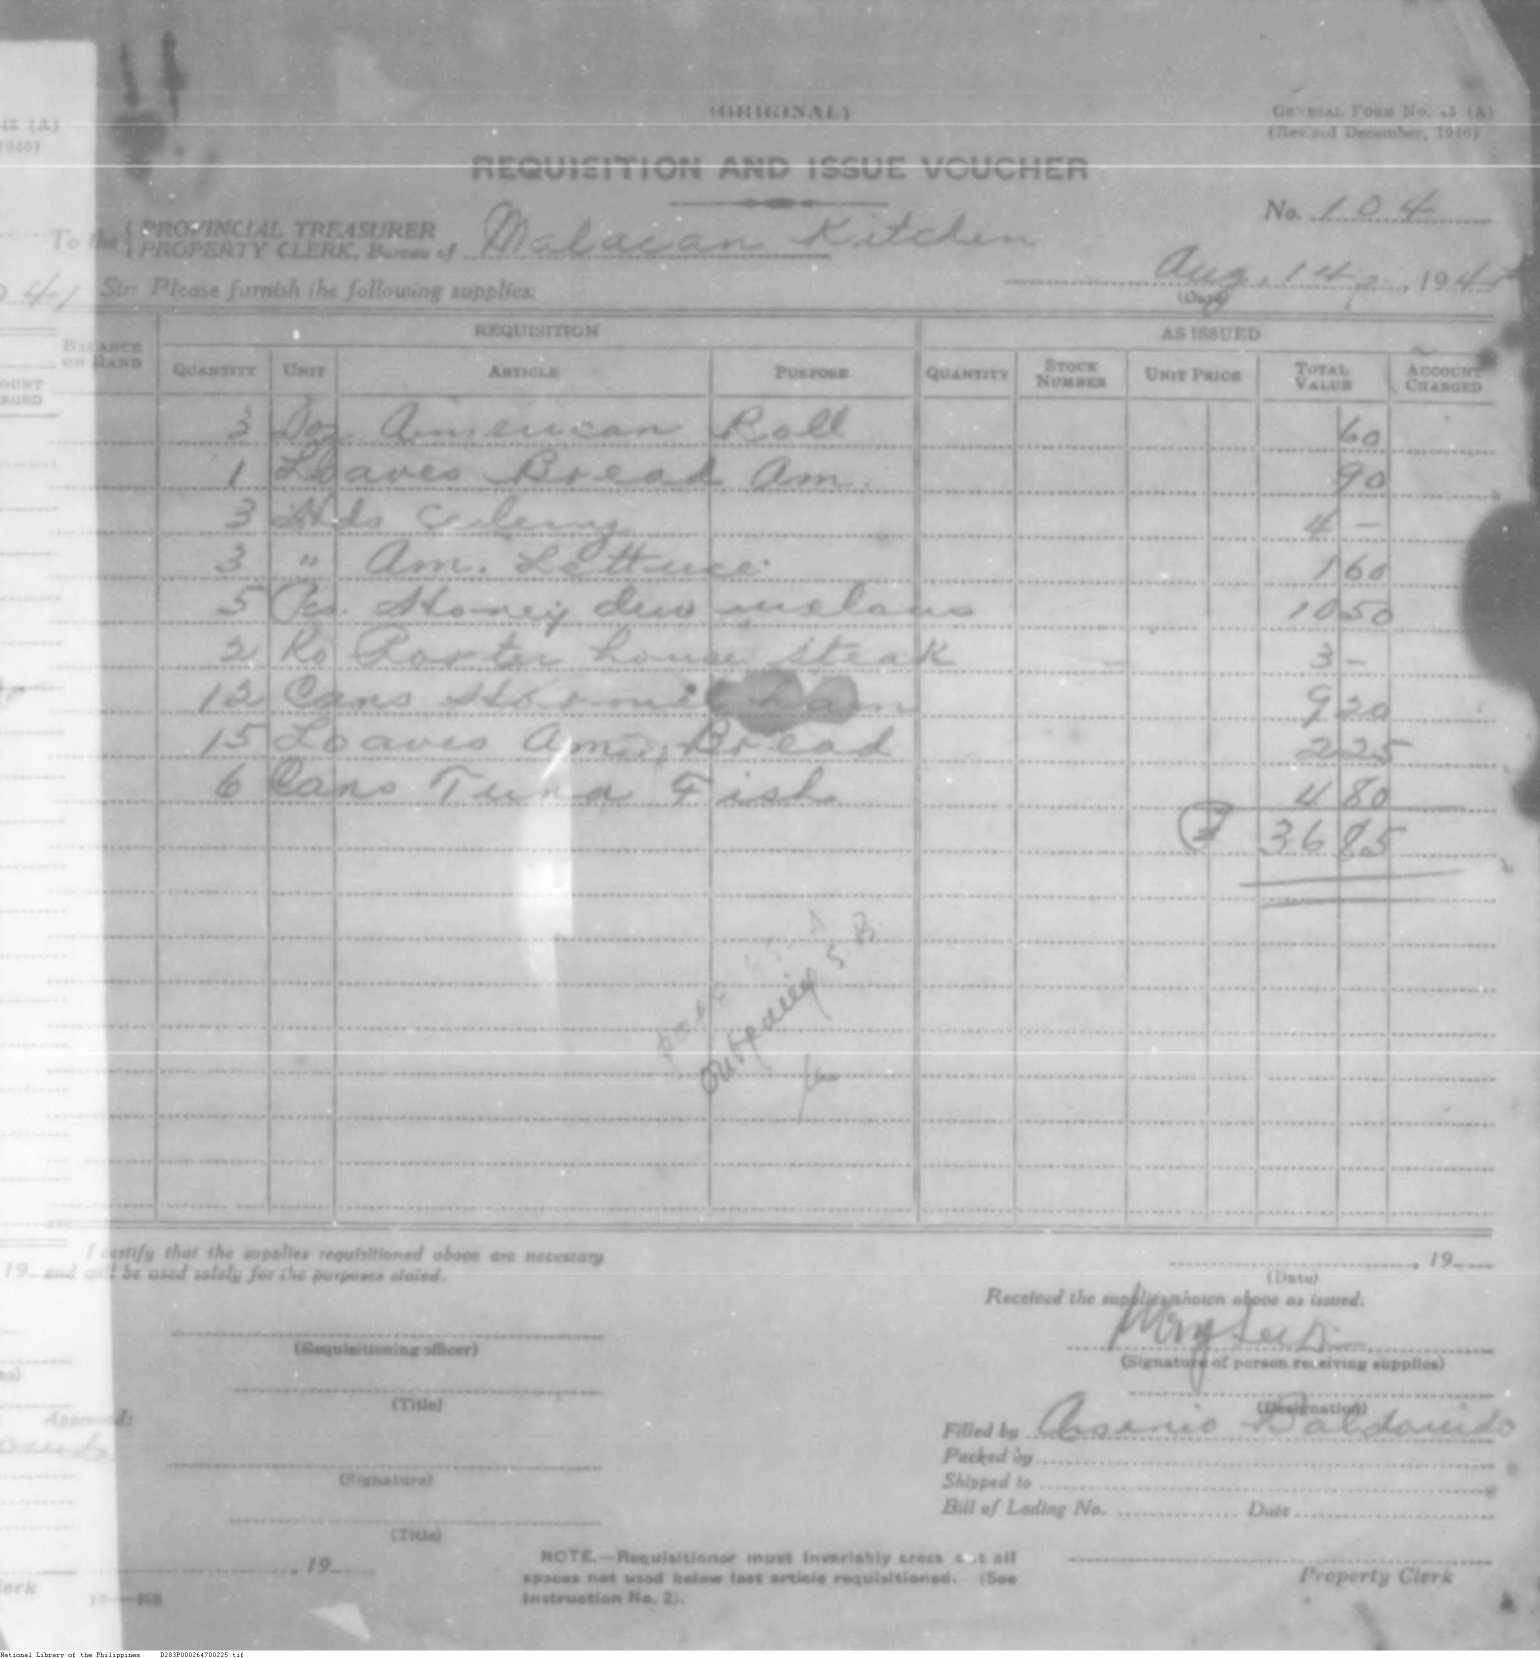 (ORIGINAL)
GENERAL FORM No. 45 (A)
(Revised December, 1940)
REQUISITION AND ISSUE VOUCHER
No. 104
To the { PROVINCIAL TREASURER
PROPERTY CLERK, Bureau of Malacan Kitchen
Aug. 14, 194
(Date)
Sir: Please furnish the following supplies:
BALANCE ON HAND REQUISITION AS ISSUED
QUANTITY UNIT ARTICLE PURPOSE QUANTITY STOCK NUMBER UNIT PRICE TOTAL VALUE ACCOUNT CHARGED
3 Doz American Roll 60
1 Loaves Bread Am. 90
3 Hds Celery 4 —
3 " Am. Lettuce 1 60
5 Pcs. Honey dew melons 10 50
2 Ko Porter house steak 3 —
12 Cans Hormel ham 9 20
15 Loaves Am. Bread 2 25
6 Cans Tuna Fish 4 80
36 85
S. B.
I certify that the supplies requisitioned above are necessary
and will be used solely for the purposes stated.
, 19
(Date)
Received the supplies shown above as issued.
(Requisitioning officer)
(Signature of person receiving supplies)
(Title)
(Designation)
Approved:
Filled by Arsenio Baldomido
Packed by
(Signature)
Shipped to
Bill of Lading No. Date
(Title)
, 19
NOTE.—Requisitioner must invariably cross out all
spaces not used below last article requisitioned. (See
Instruction No. 2).
Property Clerk
National Library of the Philippines D283P000264700225.tif